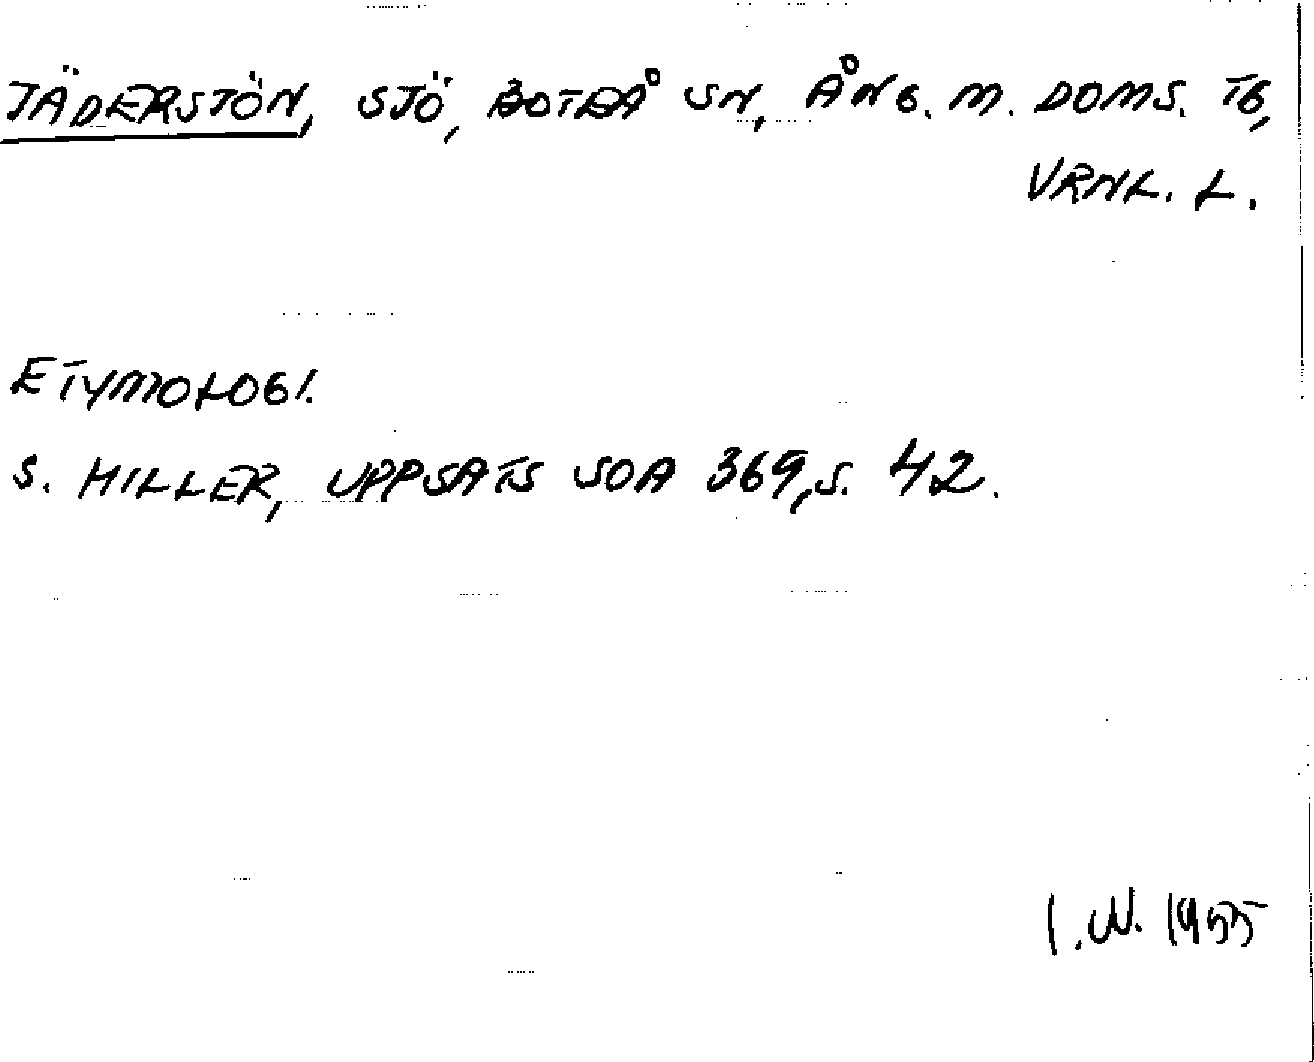 JÄDERSJÖN, SJÖ, BOTEÅ SN, ÅNG. M. DOMS. TG,
VRNL. L.
ETYMOLOGI.
S. HILLER, UPPSATS SOA 369, S. 42.
I.W. 1955